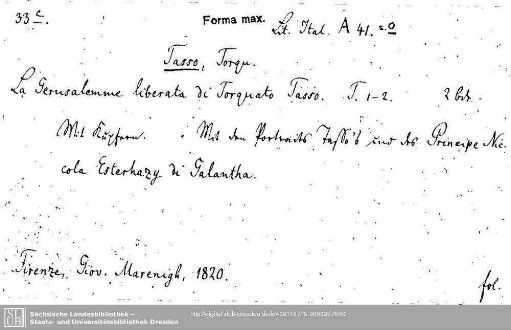 33 c. Forma max. Lit. Ital. A 41. =o
Tasso, Torqu.
La Gerusalemme liberata di Torquato Tasso. T. 1-2. 2 Bde.
Mit Kupfern. Mit den Portraits Tasso's und des Principe Ni-
cola Esterhazy di Galantha.
Firenze, Giov. Marenigh, 1820.
fol.
SLUB
Sächsische Landesbibliothek –
Staats- und Universitätsbibliothek Dresden